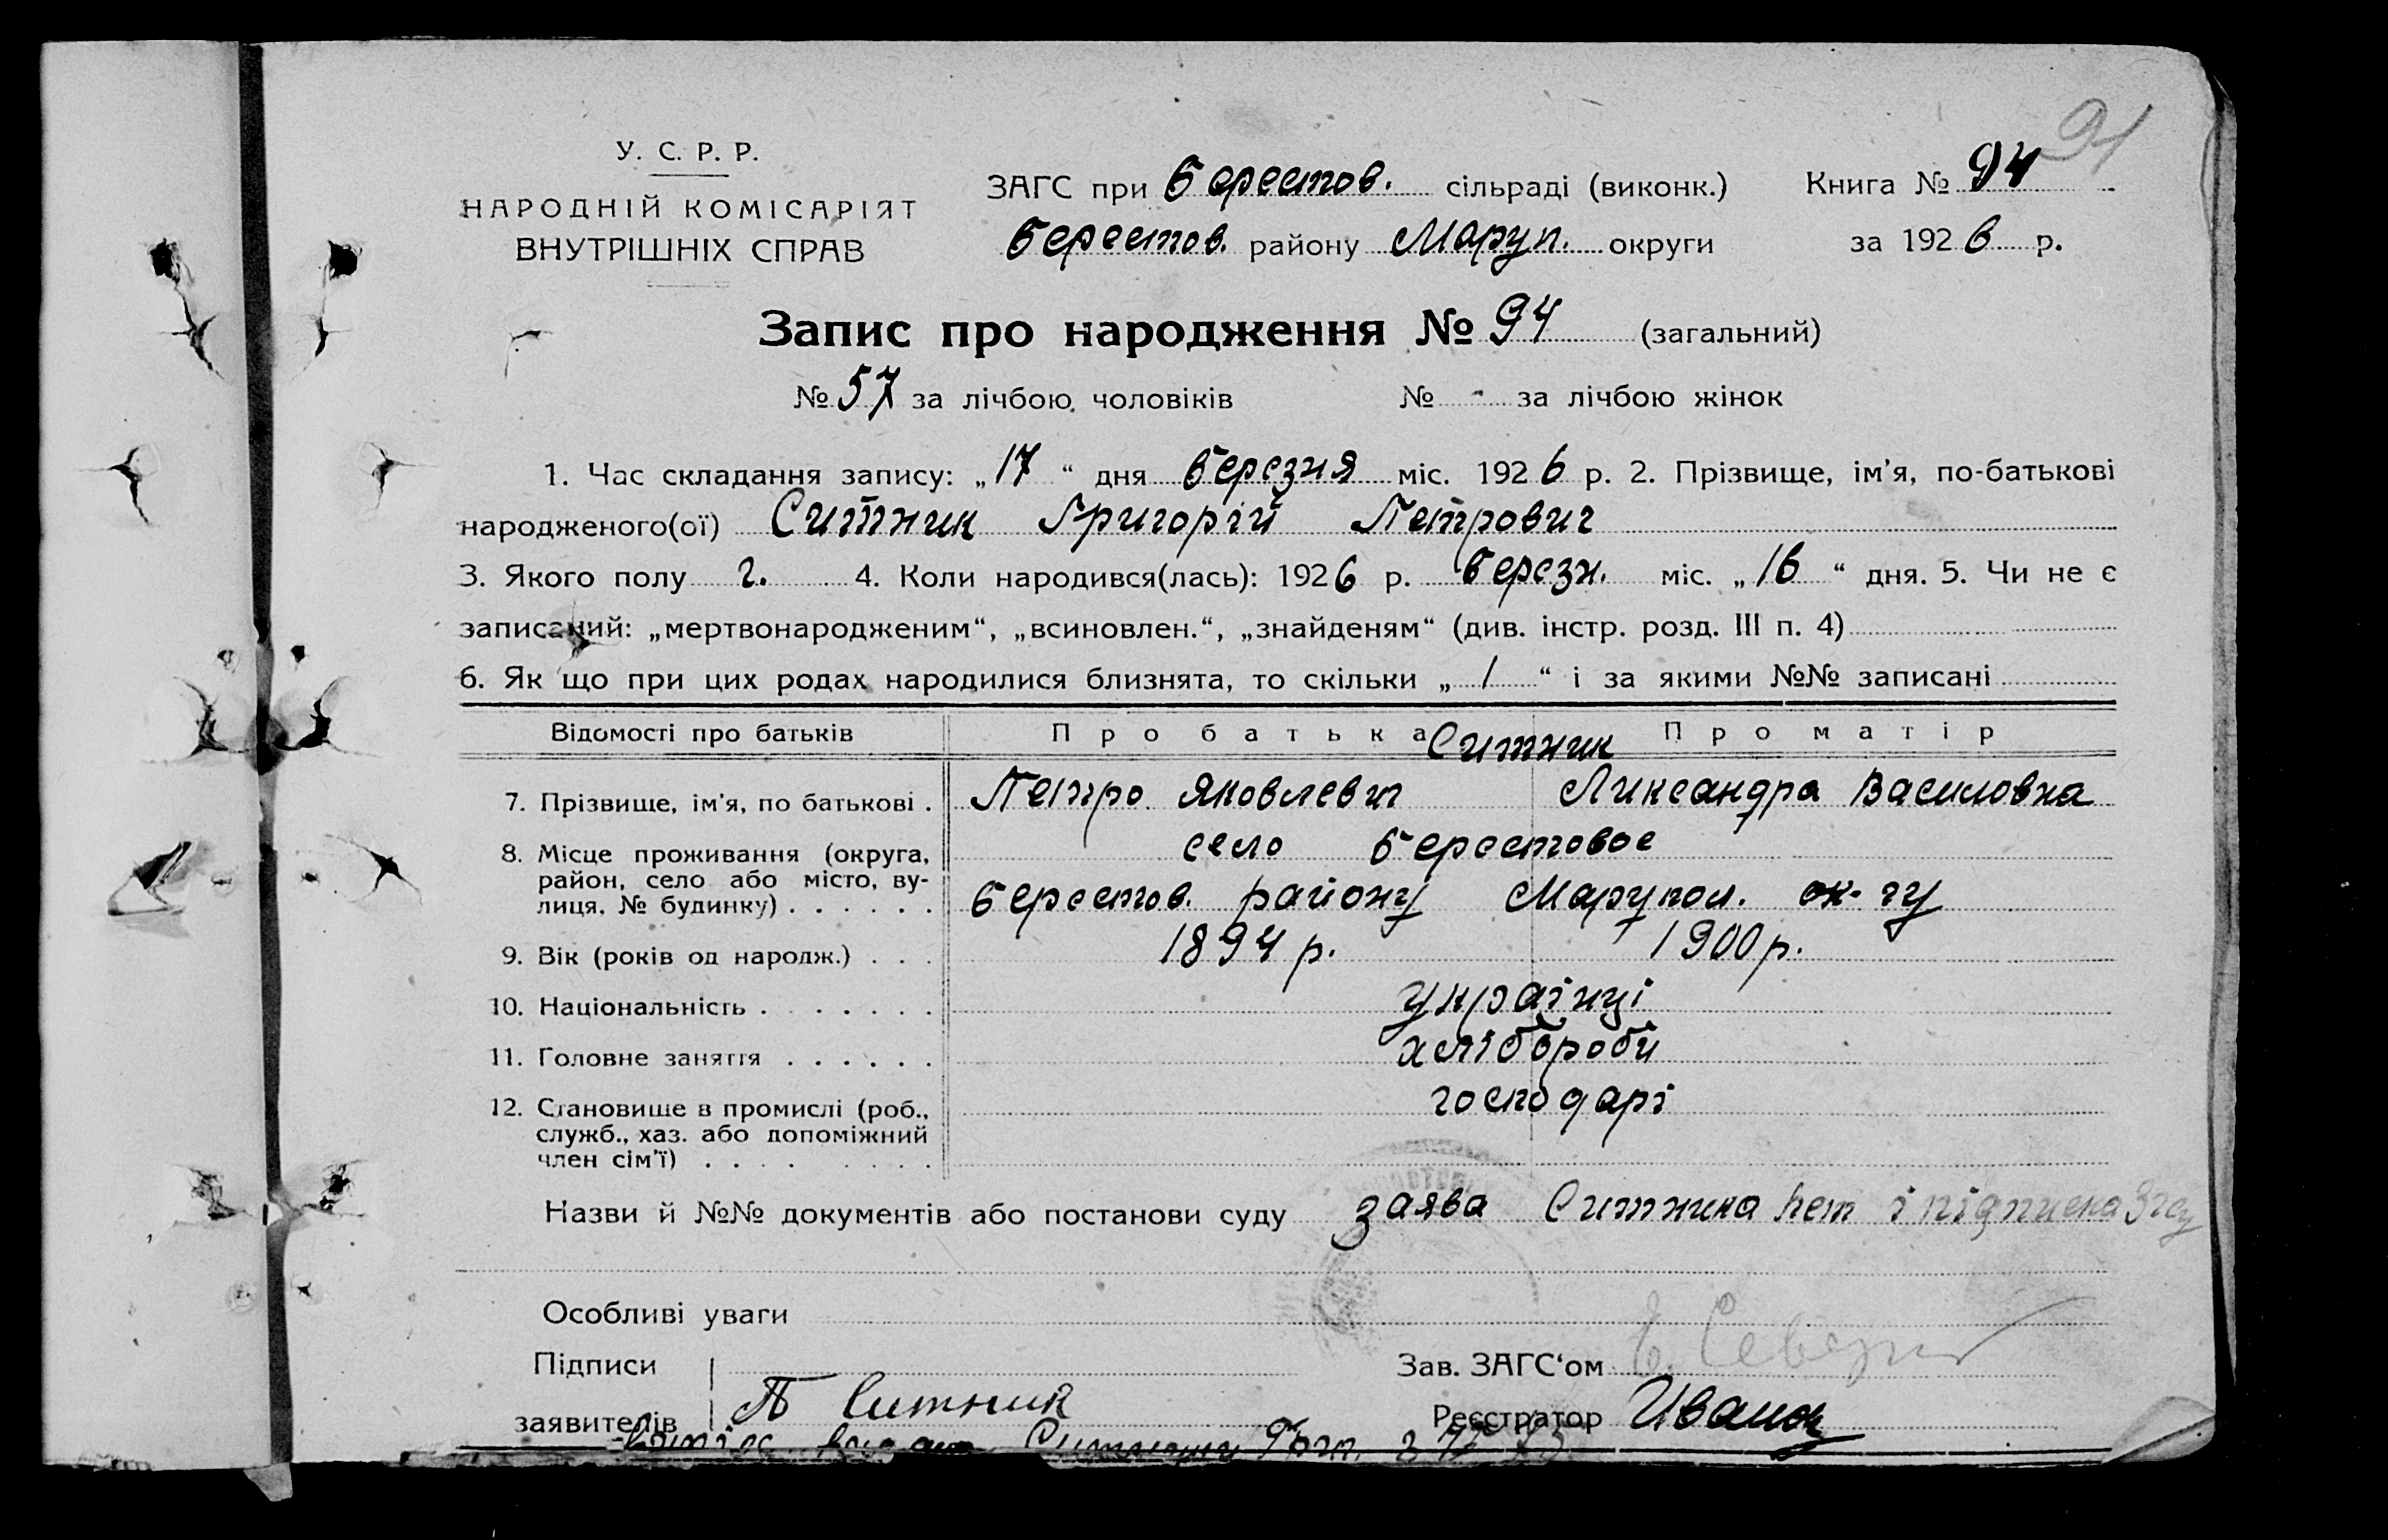 91
У. С. Р. Р.
НАРОДНІЙ КОМІСАРІЯТ
ВНУТРІШНІХ СПРАВ
ЗАГС при Берестов. сільраді (виконк.) Книга № 94
Берестов. району Маруп. округи за 1926 р.
Запис про народження № 94 (загальний)
№ 57 за лічбою чоловіків № - за лічбою жінок
1. Час складання запису: „17“ дня березня міс. 1926 р. 2. Прізвище, ім'я, по-батькові
народженого(ої) Ситник Григорій Петрович
3. Якого полу ч. 4. Коли народився(лась): 1926 р. березн. міс. „16“ дня. 5. Чи не є
записаний: „мертвонародженим“, „всиновлен.“, „знайденям“ (див. інстр. розд. III п. 4)
6. Як що при цих родах народилися близнята, то скільки „1“ і за якими №№ записані
Відомості про батьків Про батька Про матір
Ситник
7. Прізвище, ім'я, по батькові . Петро Яковлевич Лександра Василовна
8. Місце проживання (округа, село Берестовое
район, село або місто, ву-
лиця, № будинку) . . . . . . Берестов. району Марупол. ок-гу
9. Вік (років од народж.) . . . 1894 р. 1900 р.
10. Національність . . . . . . . українці
11. Головне заняття . . . . . . хлібороби
12. Становище в промислі (роб., господарі
служб., хаз. або допоміжний
член сім'ї) . . . . . . . .
Назви й №№ документів або постанови суду заява Ситника Пет і підписка
Особливі уваги
Підписи Зав. ЗАГС‘ом
заявителів П Ситник Реєстратор